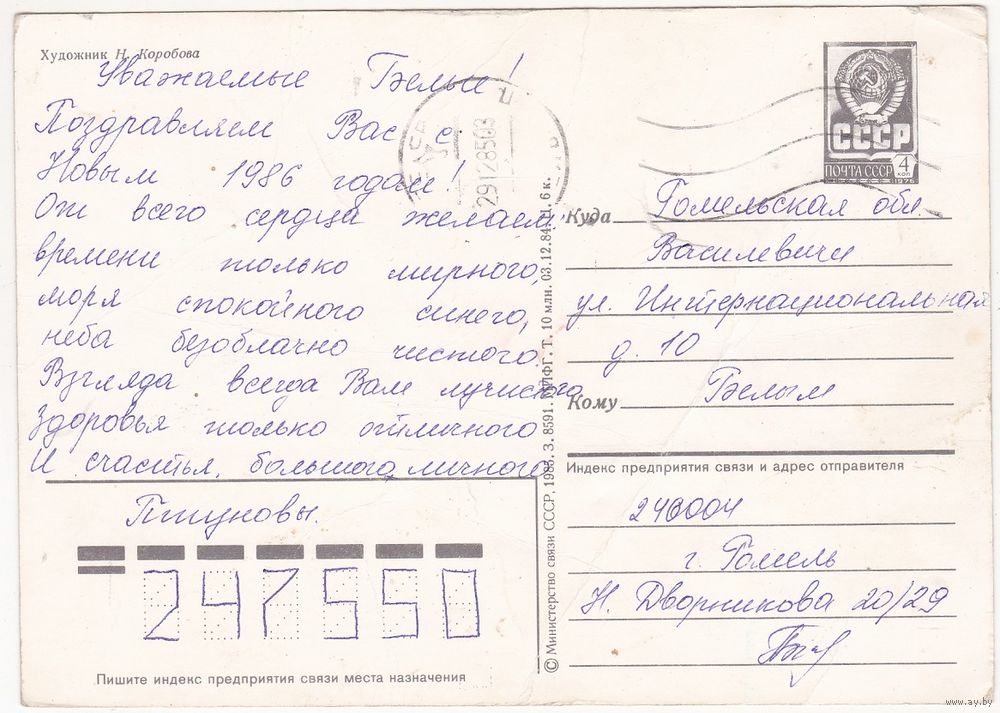 Художник Н. Коробова
Уважаемые Белые!
Поздравляем Вас с
Новым 1986 годом!
От всего сердца желаем:
времени только мирного,
моря спокойного синего,
неба безоблачно чистого.
Взгляда всегда Вам лучистого
Здоровья только отличного
И счастья, большого, личного
Птуновы.
247550
Пишите индекс предприятия связи места назначения
29128503
© Министерство связи СССР, 1983. З. 8591. ППФГ. Т. 10 млн. 03.12.84. Ц. 6 к.
СССР
ПОЧТА СССР
4 коп
Куда Гомельская обл.
Василевичи
ул. Интернациональная
д. 10
Кому Белым
Индекс предприятия связи и адрес отправителя
246004
г. Гомель
Н. Дворникова 20/29
www.ay.by